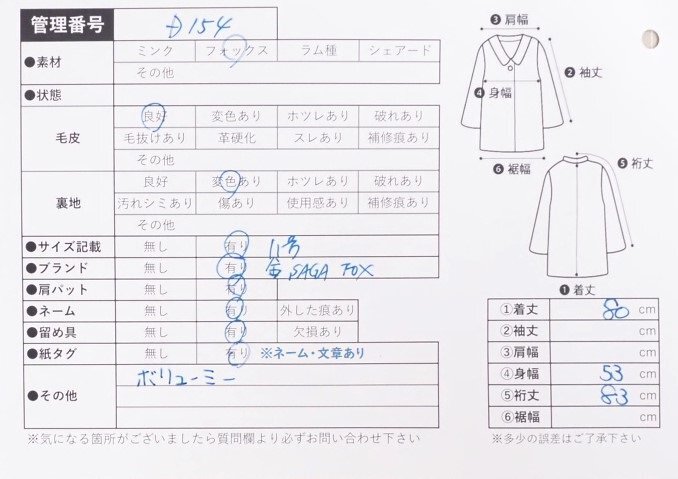 管理番号 D154
●素材 ミンク フォックス ラム種 シェアード
その他
●状態
毛皮 良好 変色あり ホツレあり 破れあり
毛抜けあり 革硬化 スレあり 補修痕あり
その他
裏地 良好 変色あり ホツレあり 破れあり
汚れシミあり 傷あり 使用感あり 補修痕あり
その他
●サイズ記載 無し 有り 11号
●ブランド 無し 有り 金 SAGA FOX
●肩パット 無し 有り
●ネーム 無し 有り 外した痕あり
●留め具 無し 有り 欠損あり
●紙タグ 無し 有り ※ネーム・文章あり
●その他 ボリューミー
※気になる箇所がございましたら質問欄より必ずお問い合わせ下さい
❸肩幅
❷袖丈
❹身幅
❻裾幅
❺裄丈
❶着丈
①着丈 80 cm
②袖丈 cm
③肩幅 cm
④身幅 53 cm
⑤裄丈 83 cm
⑥裾幅 cm
※多少の誤差はご了承下さい